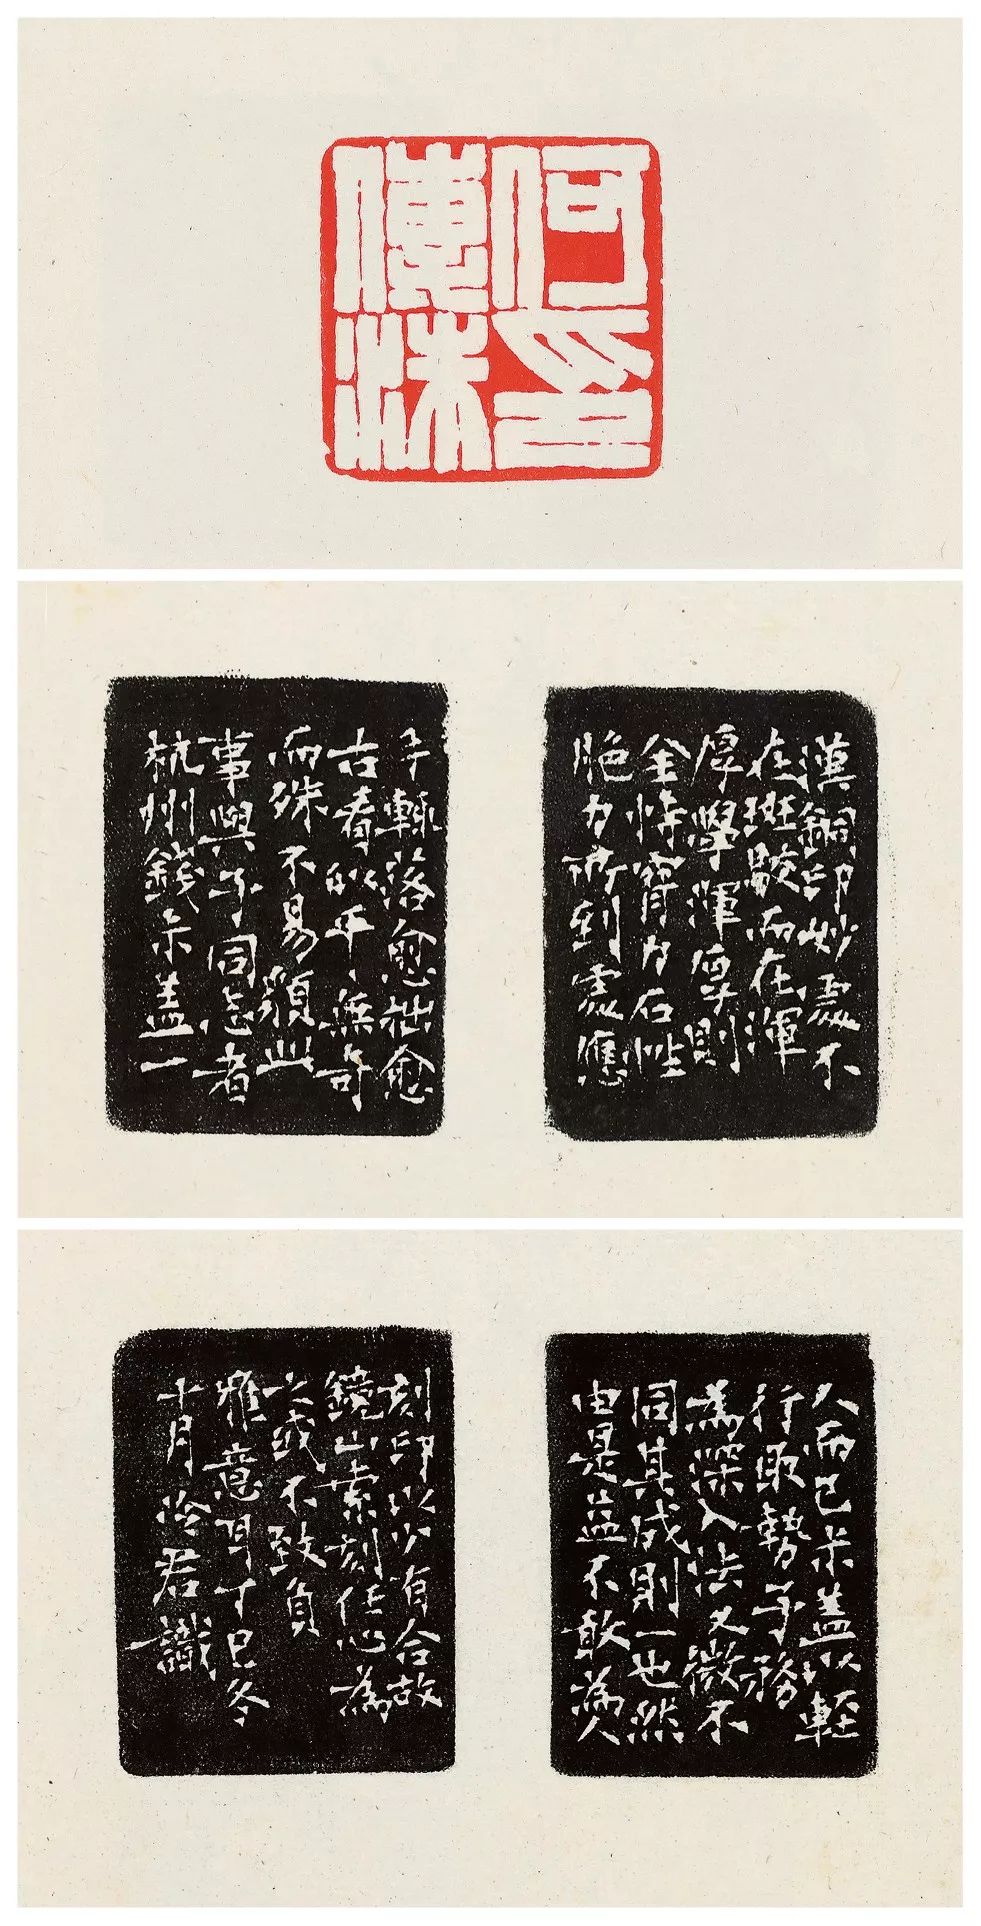 何印
傳洙
漢銅印妙處不
在斑駁而在渾
厚學渾厚則
全恃腕力石性
脆力所到處應
手輒落愈拙愈
古看似平平無奇
而殊不易䫉此
事與予同志者
杭州錢尗蓋一
人而已尗蓋以輕
行取勢予務
為深入法又微不
同其成則一也然
由是益不敢為人
刻印以少有合故
鏡山索刻任心為
之或不致負
雅意耳丁巳冬
十月冷君識